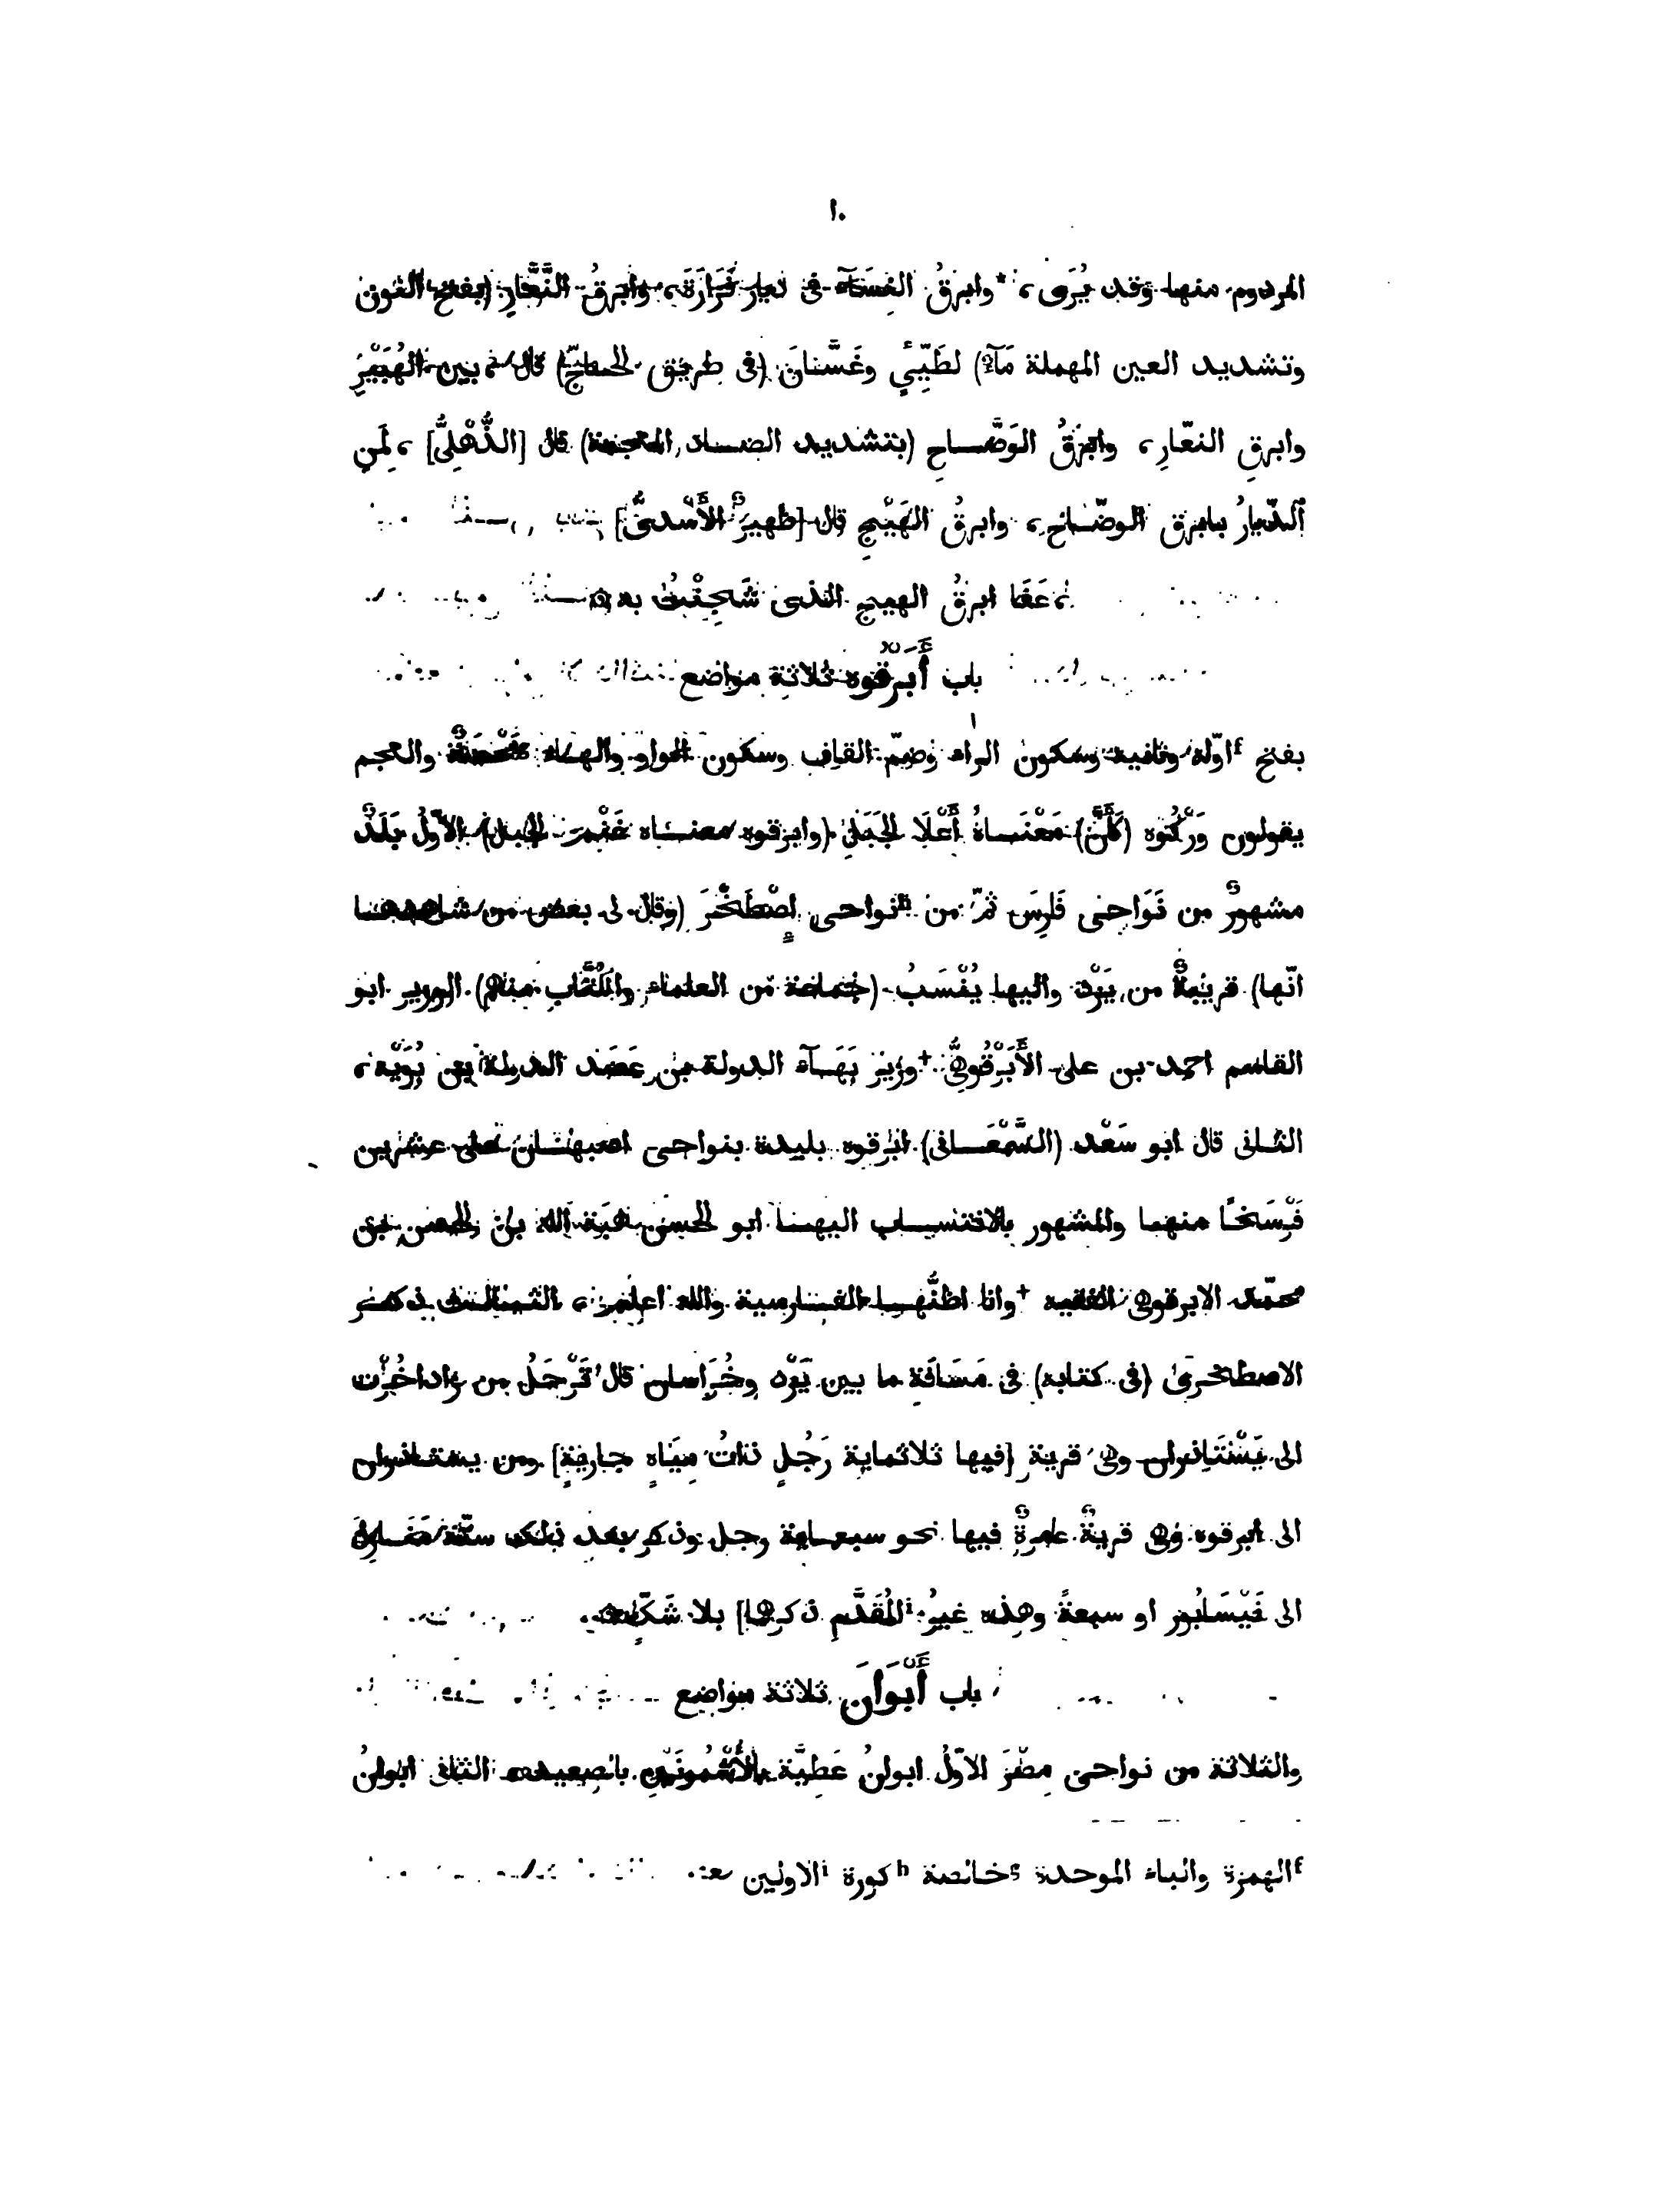 ١٠
المردوم منها وقد يُرَى، *وابرقُ النِسَآء فى ديار فَزَارَةَ، وابرقُ النَّعَّارِ (بفتح النون
وتشديد العين المهملة مَآء) لطَيِّىءٍ وغَسَّانَ (فى طريق الحاجّ) قال، بين الهُبَيْرِ
وابرقِ النعّارِ، وابرقُ الوَضَّاحِ (بتشديد الضاد المعجمة) قال [الذُّهْلِىُّ]، لِمَنِ
الدّيارُ بابرق الوضّاحِ، وابرقُ الهَيْجِ قال [ظهيرٌ الأَسَدىُّ]
، عَفَا ابرقُ الهيج الذى شَحِنَتْ به
باب أَبَرْقوه ثلاثة مواضع
بفتح ᶠاوّله وثانيه وسكون الراء وضمّ القاف وسكون الواو والهاء مَحْضَةٌ والعجم
يقولون وَرْكُوه (كَأَنَّ) مَعْنَاهُ أَعْلَا الجَبَلِ (وابرقوه معناه الجبل) الاوّلُ بَلَدٌ
مشهورٌ من نَوَاحِى فَارِسَ ثمّ من ʰنواحى إِصْطَخْرَ (وقال لى بعض من شاهدها
انّها) قريبةٌ من يَزْد واليها يُنْسَبُ (جماعة من العلماء والكُتَّابِ منهم) الوزير ابو
القاسم احمد بن على الأَبَرْقُوهِىُّ +وزير بَهَآء الدولة بن عَضَد الدولة بن بُوَيْه،
الثانى قال ابو سَعْد (السَّمْعَانى) ابرقوه بليدة بنواحى اصبهان على عشرين
فَرْسَخًا منها والمشهور بالانتساب اليها ابو الحسن هبَة الله بن الحسن بن
محمّد الابرقوهى الفقيه +وانا اظنُّها الفارسية والله اعلم، الثالث ذكر
الاصطخرى (فى كتابه) فى مَسَافَة ما بين يَزْد وخُرَاسان قال تَرْحَلُ من
الى وهى قرية [فيها ثلاثماية رَجُلٍ ذاتُ مِيَاهٍ جاريةٍ] ومن
الى ابرقوه وهى قريةٌ عامرةٌ فيها نحو سبعماية رجل وذكر بعد ذلك ستّة مَنَازِلَ
الى نَيْسَابُور او سبعةً وهذه غيرُ ⁱالمُقَدَّمِ ذكرها] بلا شَكٍّ
باب أَبْوَانَ ثلاثة مواضع
والثلاثة من نواحى مِصْرَ الاوّلُ ابوانُ عَطِيَّة بالأُشْمُونَيْنِ بالصعيد، الثانى ابوانُ
ᶠالهمزة والباء الموحدة ᵍخالصة ʰكورة ⁱالاولين